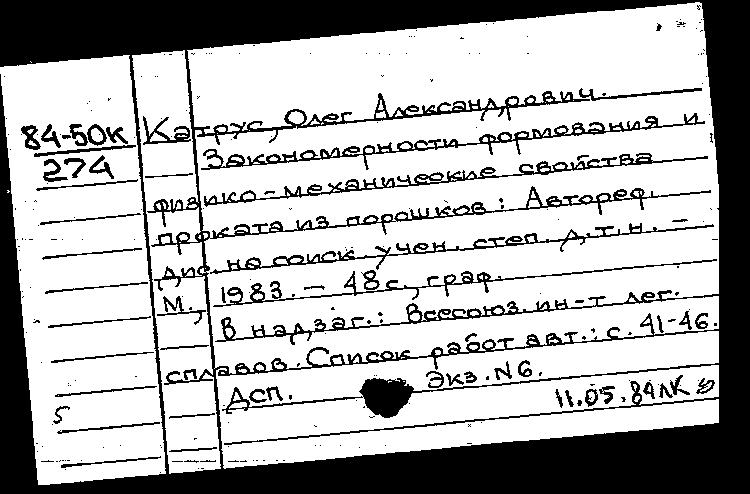 84-50к
274
Катрус, Олег Александрович.
Закономерности формования и
физико-механические свойства
проката из порошков: Автореф.
дис. на соиск. учен. степ. д.т.н. -
М., 1983. - 48 с., граф.
В надзаг.: Всесоюз. ин-т лег.
сплавов. Список работ авт.: с. 41-46.
Дсп. Экз. N6.
5
11.05.84 ЛК